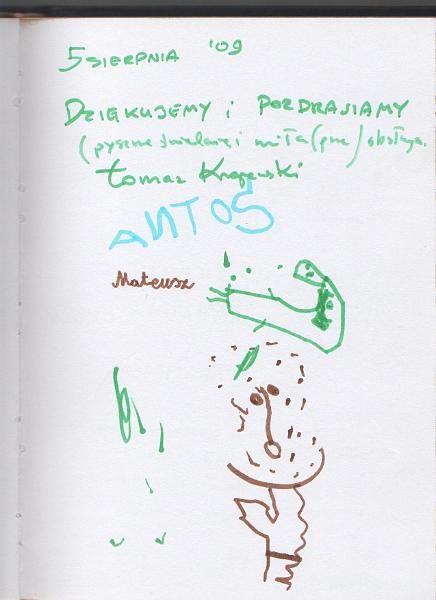 5 SIERPNIA '09
DZIĘKUJEMY i POZDRAWIAMY
(pyszne śniadanie i miła (pne) obsługa.
Tomasz Krajewski
ANTOŚ
Mateusz